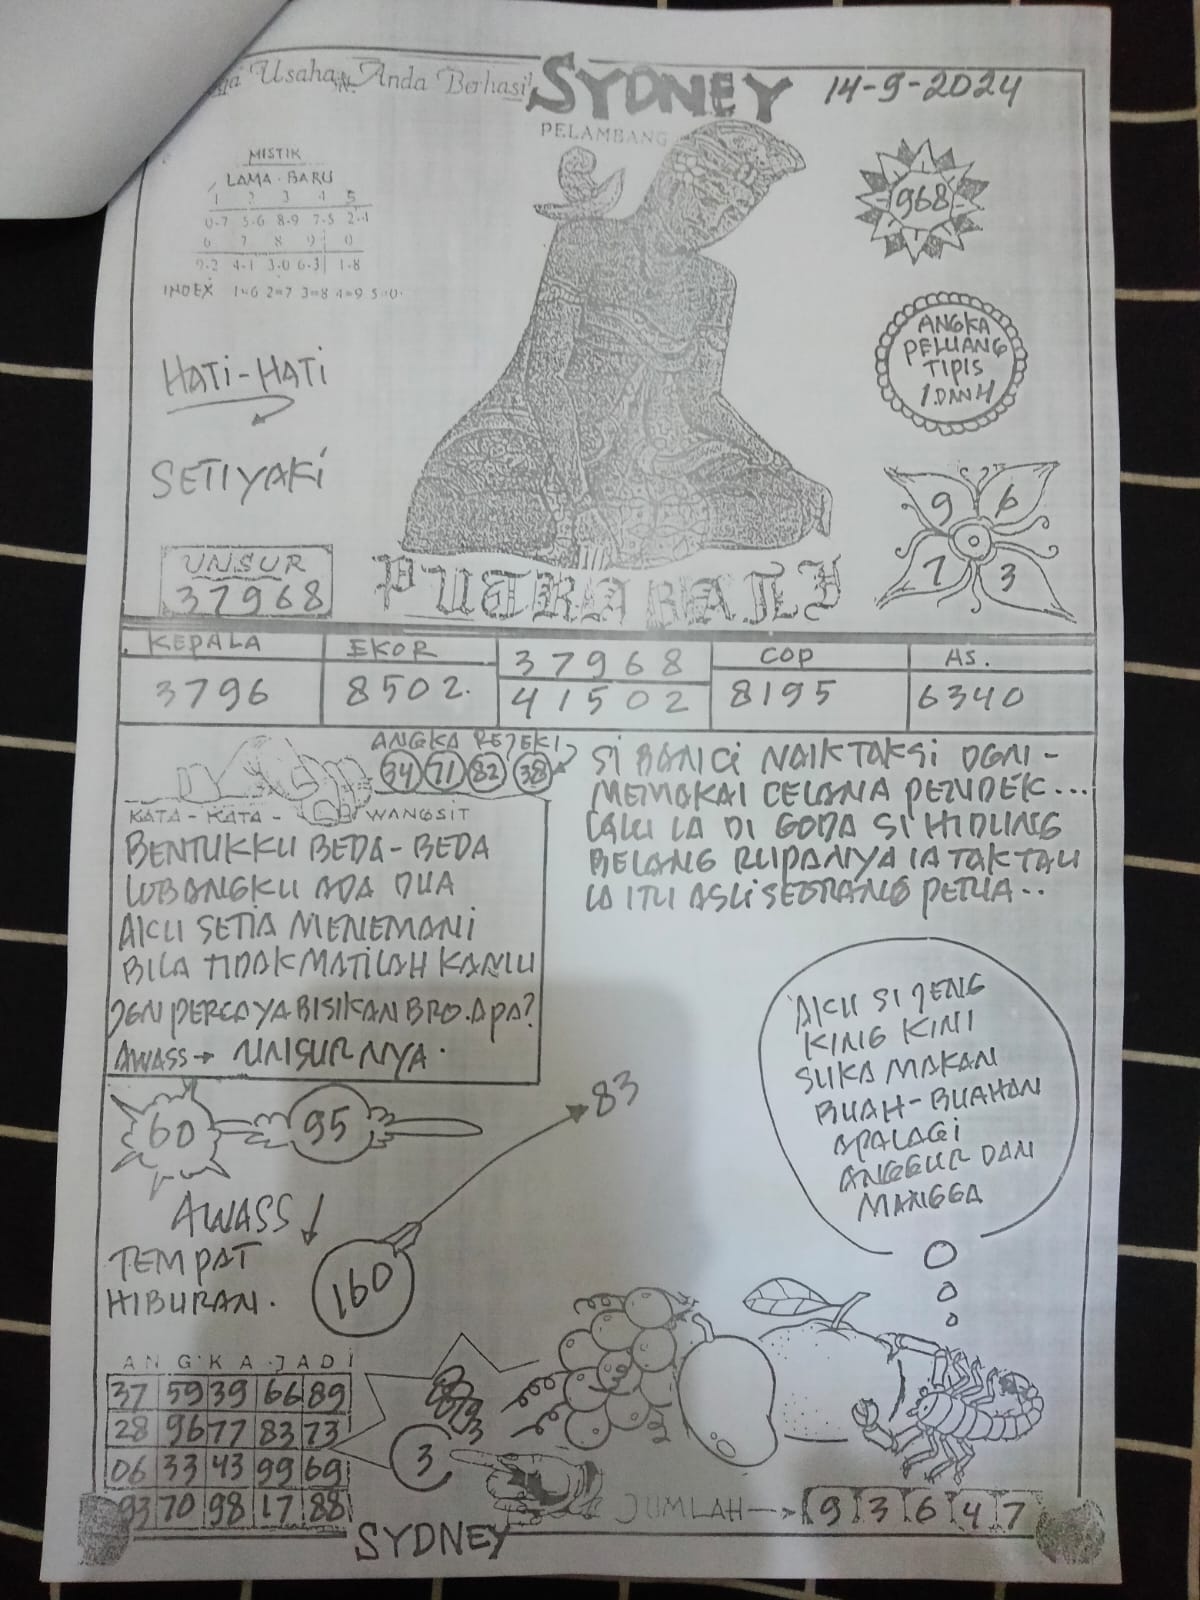 Usaha Anda Berhasil
SYDNEY
14-9-2024
PELAMBANG
MISTIK
LAMA - BARU
1 2 3 4 5
0-7 5-6 8-9 7-5 2-4
6 7 8 9 0
9-2 4-1 3-0 6-3 1-8
INDEX 1=6 2=7 3=8 4=9 5=0
968
HATI-HATI
ANGKA
PELUANG
TIPIS
1 DAN 4
SETIYAKI
9 6
7 3
UNSUR
37968
PUTRA BALI
KEPALA
3796
EKOR
8502.
37968
41502
COP
8195
AS.
6340
ANGKA REJEKI
34 71 82 38
KATA - KATA - WANGSIT
BENTUKKU BEDA-BEDA
LUBANGKU ADA DUA
AKU SETIA MENEMANI
BILA TIDAK MATILAH KAMU
JGN PERCAYA BISIKAN BRO. APA?
AWASS → UNSURNYA.
SI BANCI NAIK TAKSI DGN -
MEMAKAI CELANA PENDEK...
LALU IA DI GODA SI HIDUNG
BELANG RUPANYA IA TAK TAU
IA ITU ASLI SEORANG PRIA...
AKU SI JENG
KING KINI
SUKA MAKAN
BUAH-BUAHAN
APALAGI
ANGGUR DAN
MANGGA
60 95
83
AWASS
TEMPAT
HIBURAN.
160
ANGKA JADI
37 59 39 66 89
28 96 77 83 73
06 33 43 99 69
93 70 98 17 88
3
JUMLAH → 9 3 6 4 7
SYDNEY